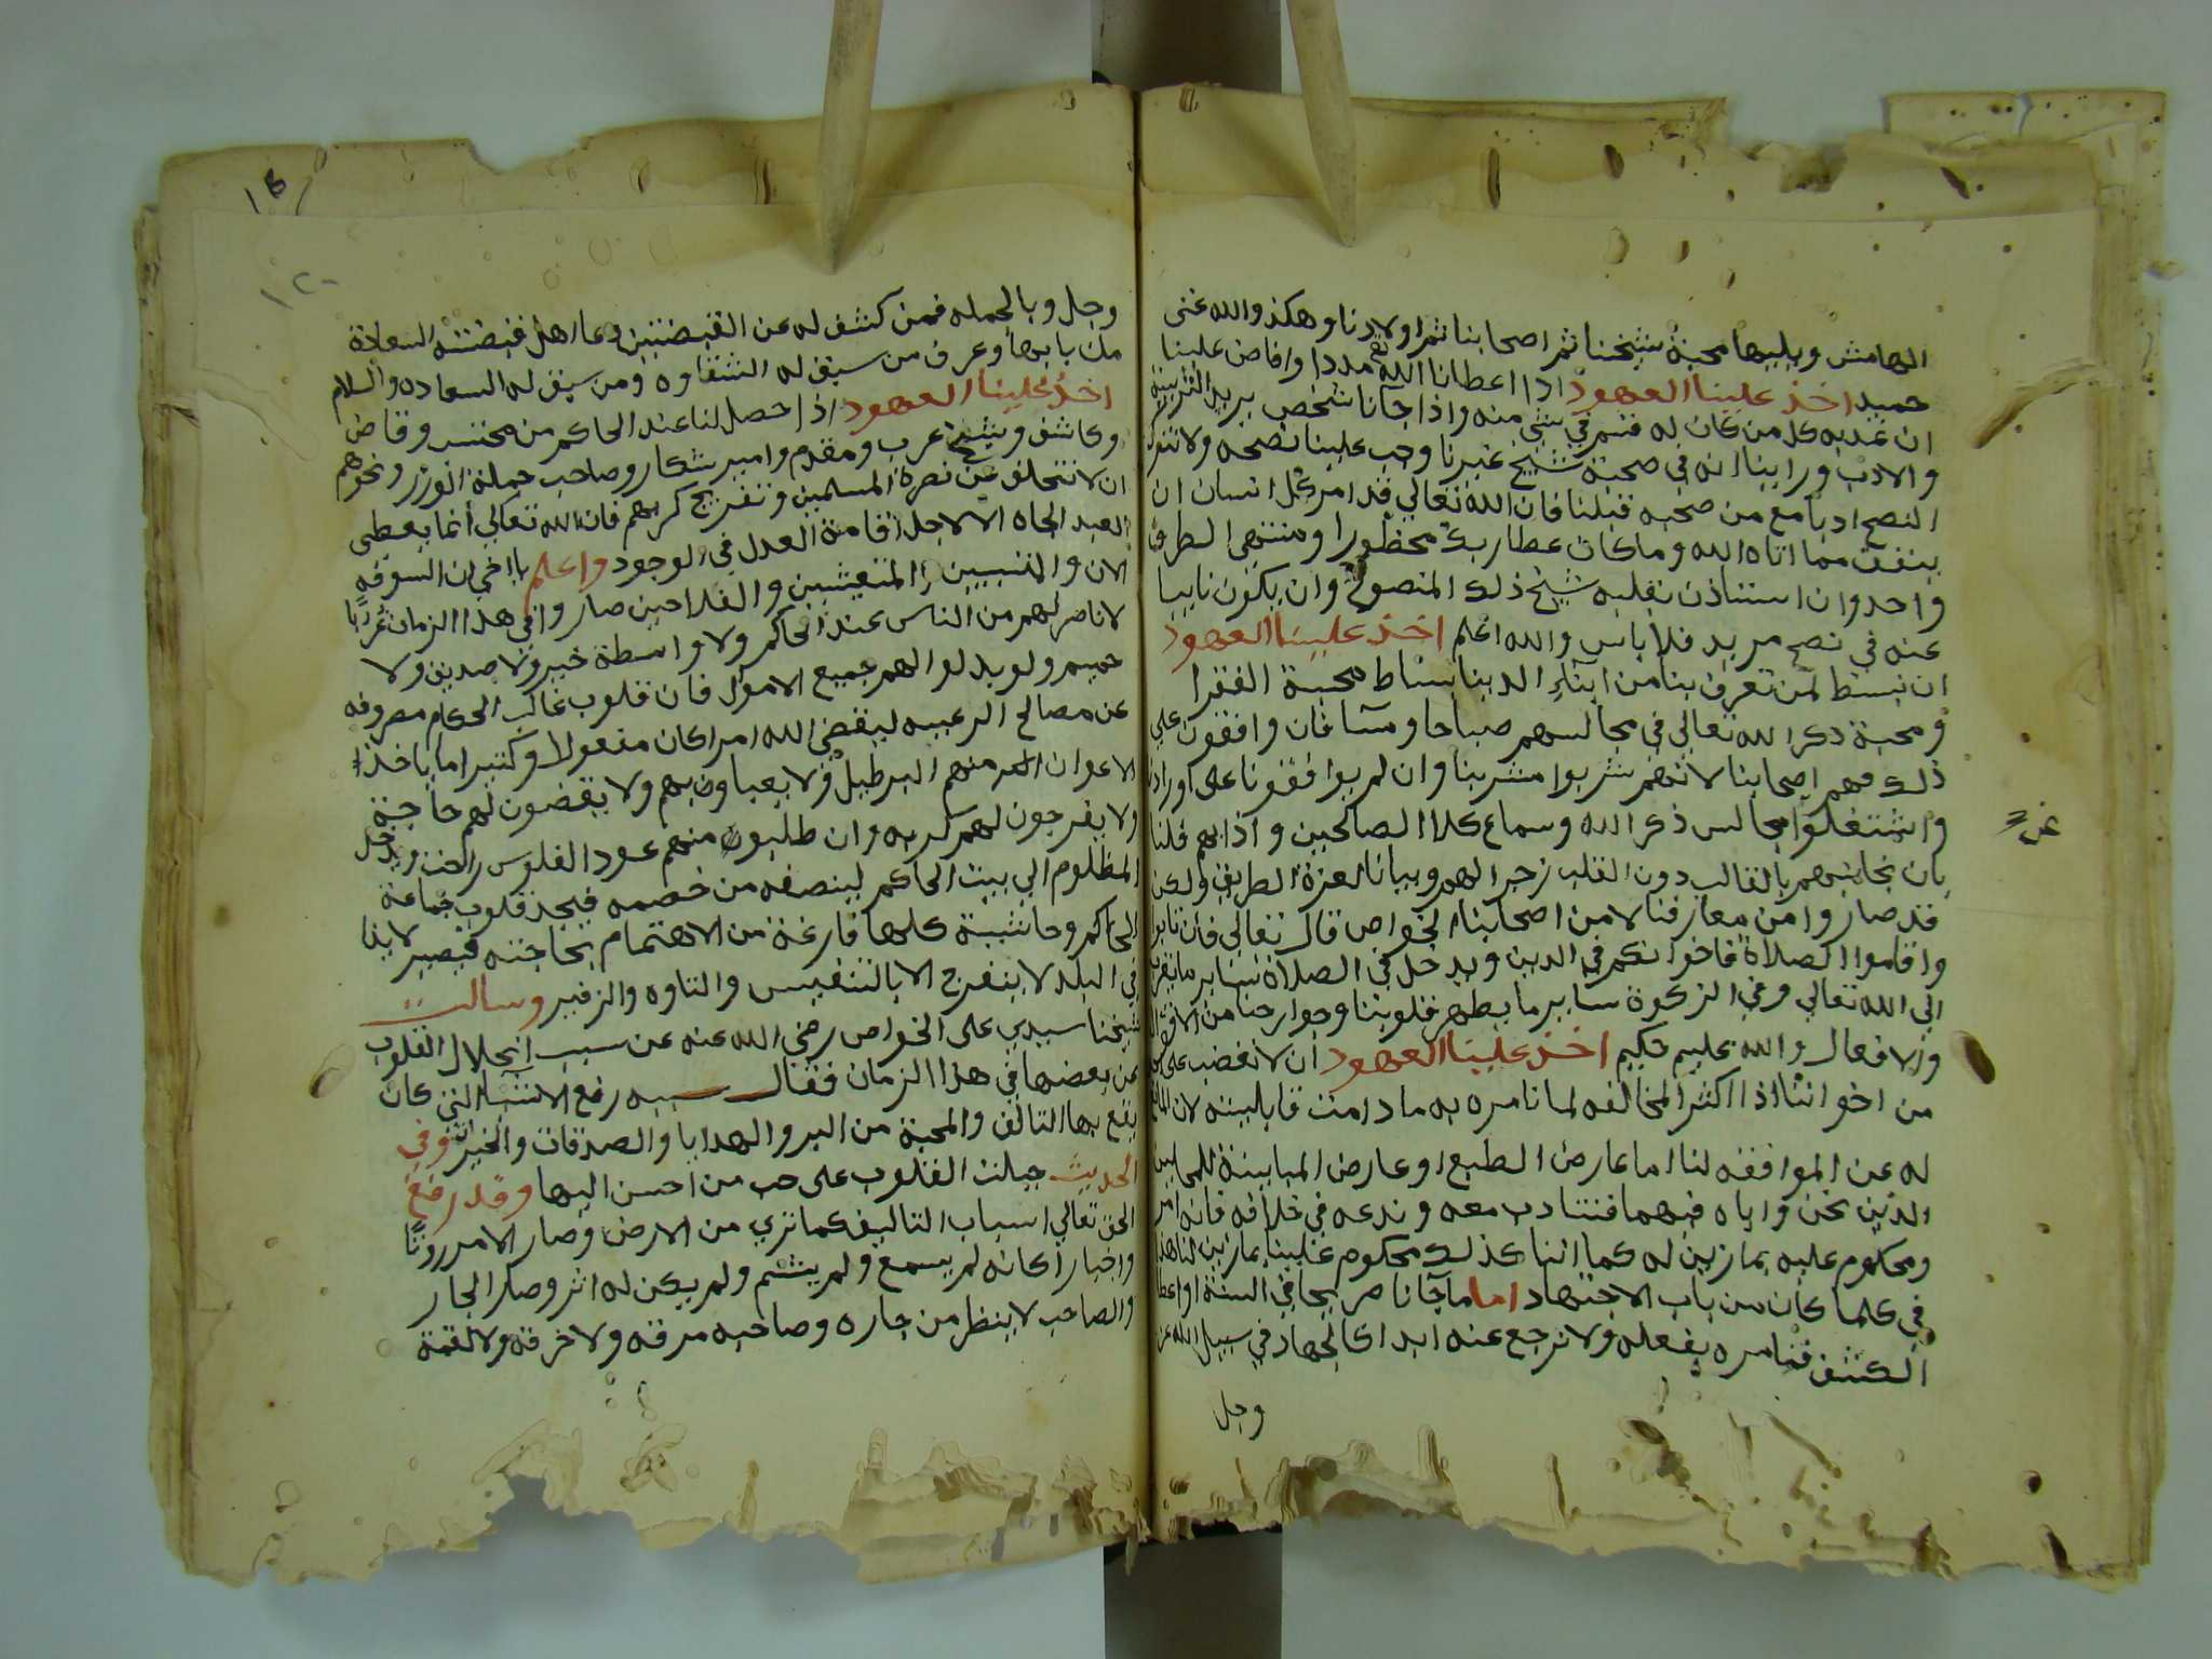 الهامش ويليها محبة شيخنا ثم اصحابنا ثم اولادنا وهكذ والله غنى
حميد اخذ علينا العهود اذا اعطانا الله تع مددا وافاض علينا
ان نمد به كل من كان له قسم في شي منه واذا جآنا شخص يريد التربية
والادب وراينا انه في صحبة شيخ غيرنا وجب علينا نصحه ولا نترك
النصح ادبا مع من صحبه قبلنا فان الله تعالي قد امر كل انسان ان
ينفق مما اتاه الله وما كان عطا ربك محظورا ومنتهى الطرق
واحد وان استاذن بقلبه شيخ ذلك المنصوح وان يكون نايبا
عنه في نصح مريد فلا باس والله اعلم اخذ علينا العهود
ان نبسط لمن تعرف بنا من ابنآء الدينا بساط محبة الفقرا
ومحبة ذكر الله تعالى في مجالسهم صباحا ومسا فان وافقون علي
ذلك فهم اصحابنا لانهم شربوا مشربنا وان لم يوافقونا على اورادنا
واشتغلوا مجالس ذكر الله وسماع كلام الصالحين واذابهم قلنا
بان نجانبهم بالقالب دون القلب زجرا لهم وبيانا لعزة الطريق ولكن
قد صاروا من معارفنا لا من اصحابنا الخواص قال تعالى فان تابوا
واقاموا الصلاة فاخوانكم في الدين ويدخل في الصلاة ساير ما يقرب
الى الله تعالي وفي الزكوة ساير ما يطهر قلوبنا وجوارحنا من الاقوال
والافعال والله عليم حكيم اخذ علينا العهود ان لا نغضب على احد
من اخواننا اذا اكثر المخالفه لما نامره به ما دامت قابليته لان المانع
له عن الموافقه لنا اما عارض الطبع او عارض المباينة للمجلس
الذين نحن واياه فيهما فنتادب معه وندعه في خلافه فانه امر
ومحكوم عليه بما زين له كما اننا كذلك محكوم علينا بما زين لنا هذا
في كلما كان من باب الاجتهاد اما ما جآنا صريحا في السنة او اعطا
الكشف فنامره بفعله ولا نرجع عنه ابدا كالجهاد في سبيل الله عز
وجل
عن
وجل وبالجمله فمن كشف له عن القبضتين دعا اهل قبضته السعادة
من بابها وعرف من سبق له الشقاوه ومن سبق له السعاده والسلام
اخذ علينا العهود اذا حصل لنا عند الحاكم من محتسب وقاض
وكاشف وشيخ عرب ومقدم وامير شكار وصاحب حملة الوزر ونحوهم
ان لا نتخلف عن نصرة المسلمين وتفريج كربهم فان الله تعالي انما يعطى
العبد الجاه الا لاجل اقامة العدل في الوجود واعلم يا اخي ان السوقه
الان والمتسببين والمتعيشين والفلاحين صاروا في هذا الزمان غربا
لا ناصر لهم من الناس عند الحاكم ولا واسطة خير ولا صديق ولا
حميم ولو بدلوا لهم جميع الاموال فان قلوب غالب الحكام مصروفه
عن مصالح الرعيه ليقضي الله امرا كان مفعولا وكثيرا ما ياخذ
الاعوان منهم البرطيل ولا يعباون بهم ولا يقضون لهم حاجة
ولا يفرجون لهم كربه وان طلبون منهم عود الفلوس ويدخل
المظلوم الى بيت الحاكم لينصفه من خصمه فيجد قلوب جماعة
الحاكم وحاشيته كلها فارغة من الاهتمام بحاجته فيصير لايذا
في البلد لا ينفرج الا بالتنفيس والتاوه والزفير وسالت
شيخنا سيدي على الخواص رضي الله عنه عن سبب انحلال القلوب
عن بعضها في هذا الزمان فقال سببه رفع الاشيا التي كان
يقع بها التالف والمحبة من البر والهدايا والصدقات والخيرات وفي
الحديث جبلت القلوب على حب من احسن اليها وقد رفع
الحق تعالي اسباب التاليف كما تري من الارض وصار الامر
واخبارا كانه لم يسمع ولم يشم ولم يكن له اثر وصار الجار
والصاحب لا ينظر من جاره وصاحبه مرقه ولا خرقة ولا لقمة
١٢٠